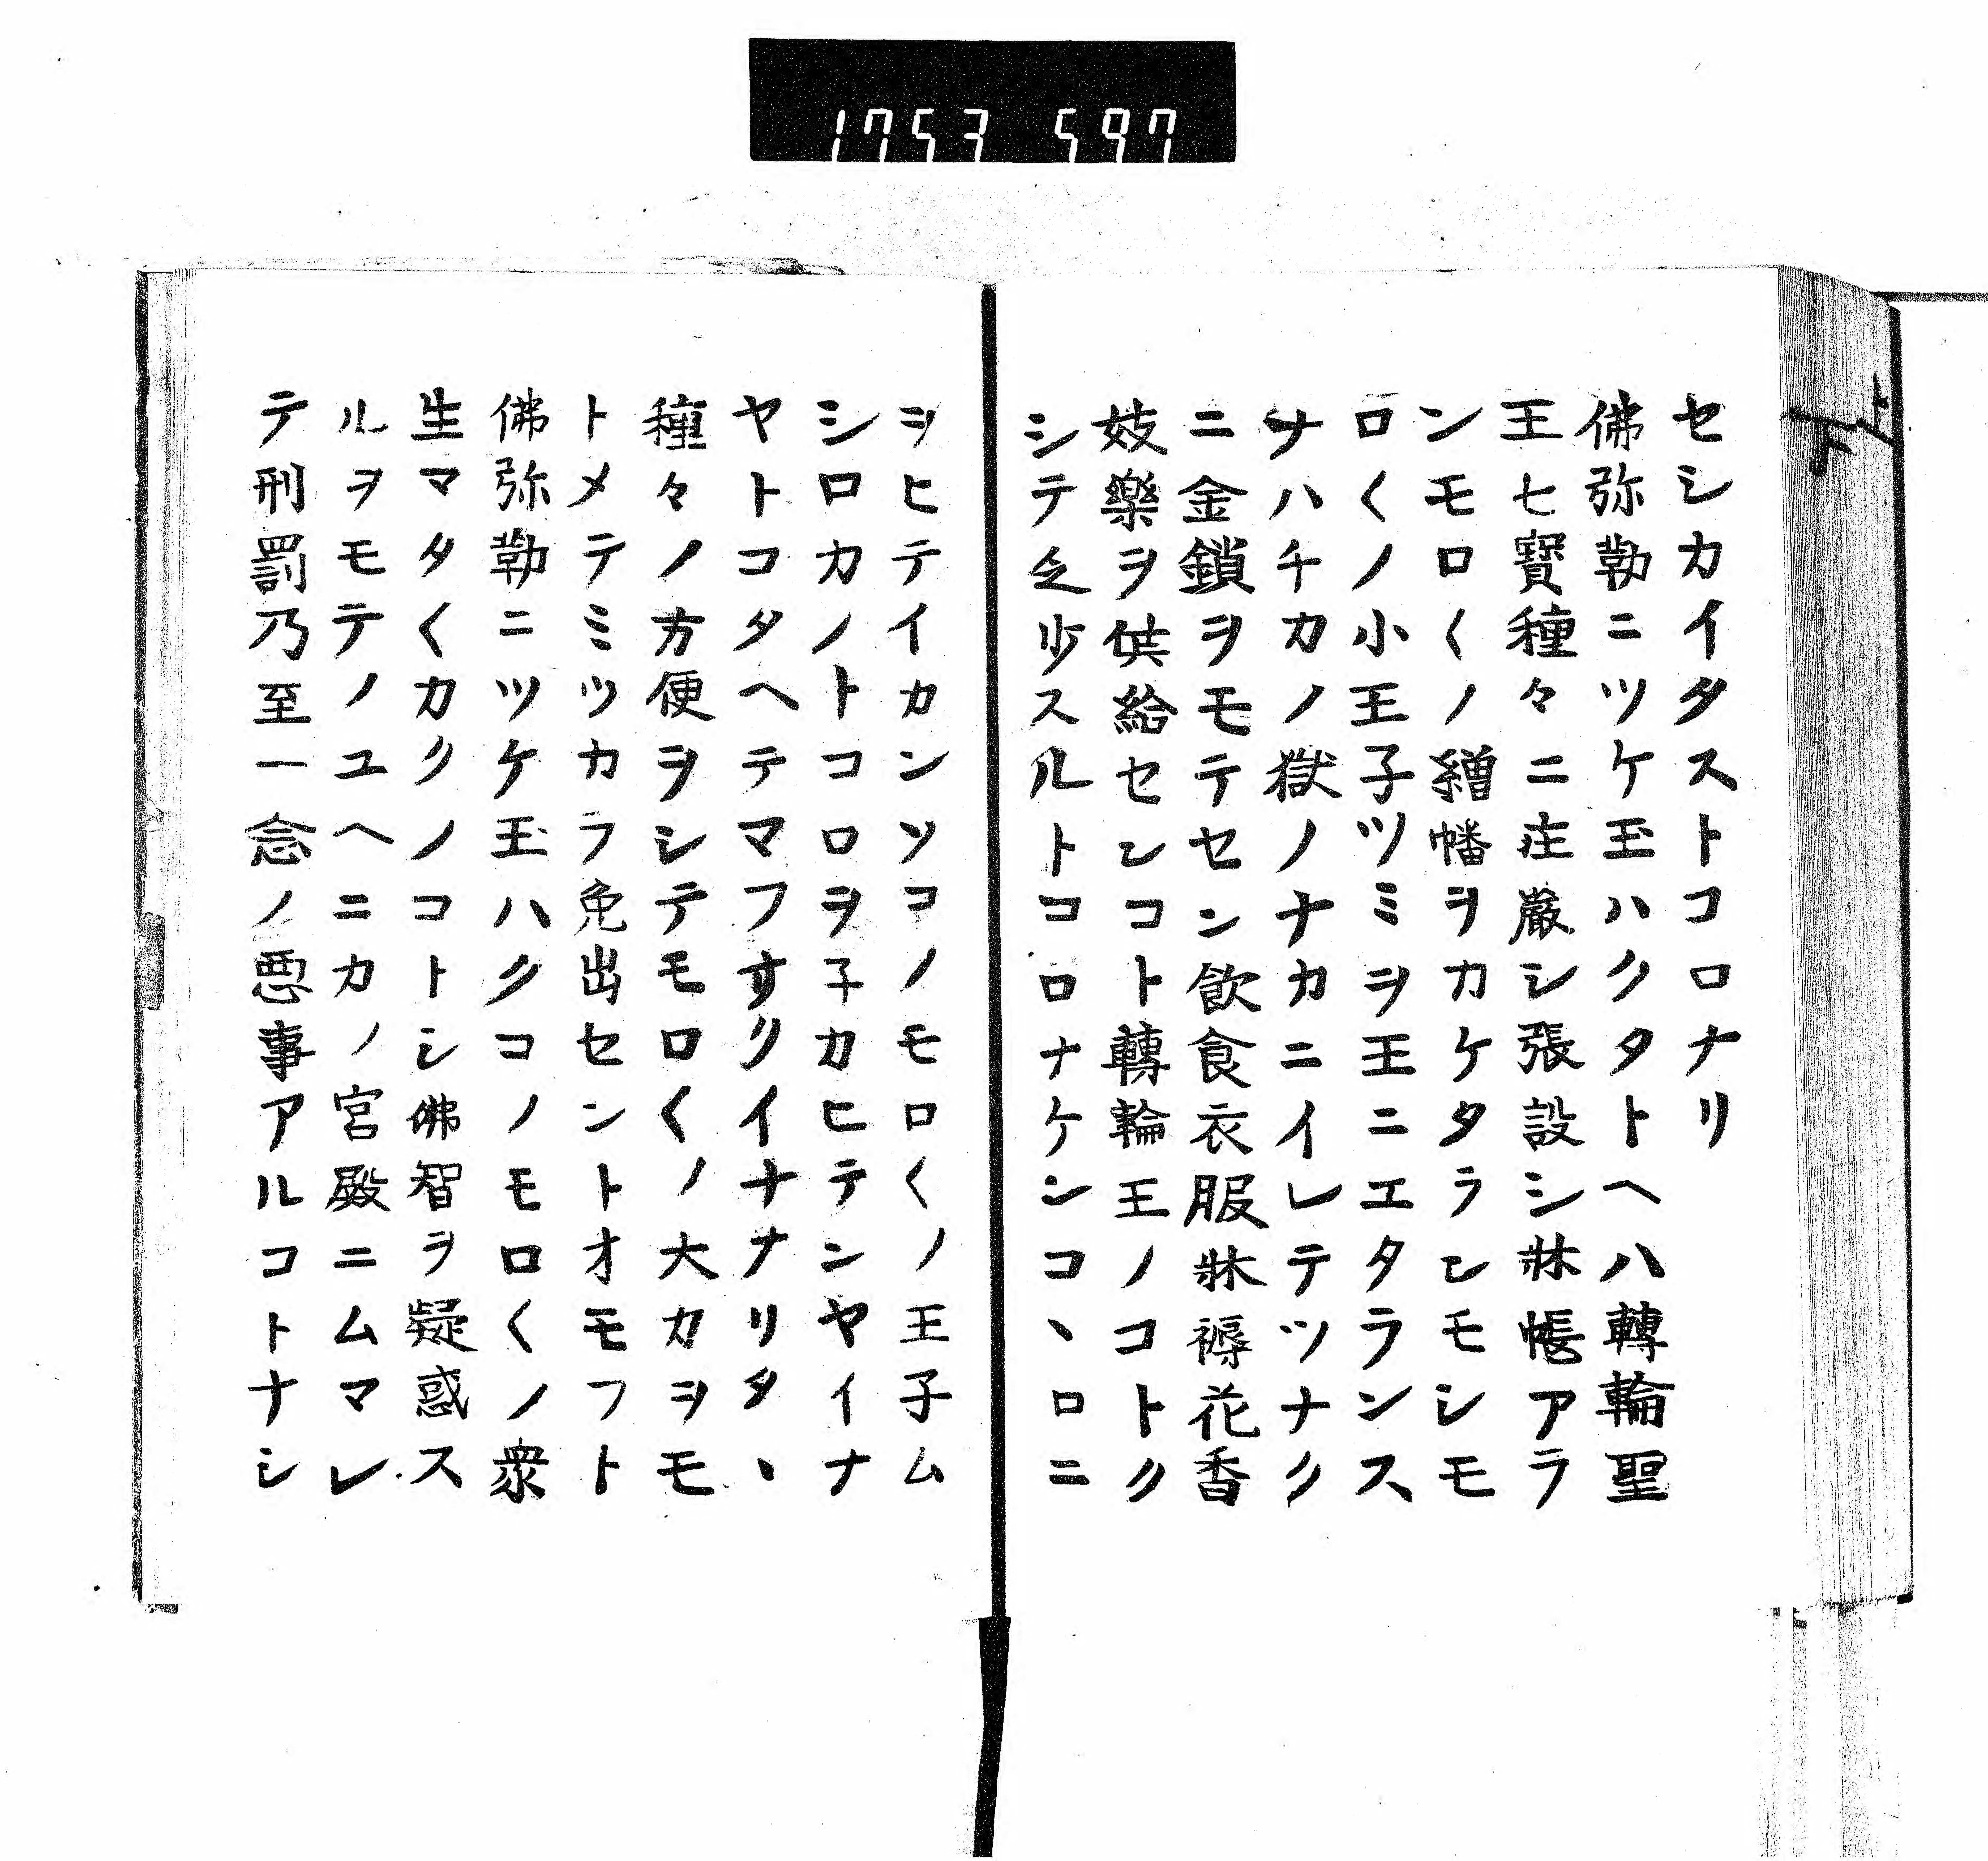 1753 597
セシカイタストコロナリ
佛弥勒ニツケ玉ハクタトヘハ轉輪聖
王七寳種々ニ庄嚴シ張設シ牀帳アラ
ンモロ〱ノ繒幡ヲカケタラレモシモ
ロ〱ノ小王子ツミヲ王ニエタランス
ナハチカノ獄ノナカニイレテツナク
ニ金鎖ヲモテセン飲食衣服牀褥花香
妓樂ヲ供給センコト轉輪王ノコトク
シテ乏少スルトコロナケンコヽロニ
ヲヒテイカンソコノモロ〱ノ王子ム
シロカノトコロヲ子カヒテンヤイナ
ヤトコタヘテマフサクイナナリタヽ
種々ノ方便ヲシテモロ〱ノ大カヲモ
トメテミツカラ免出セントオモフト
佛弥勒ニツケ玉ハクコノモロ〱ノ衆
生マタ〱カクノコトシ佛智ヲ疑惑ス
ルヲモテノユヘニカノ宮殿ニムマレ
テ刑罰乃至一念ノ悪事アルコトナシ
上
下